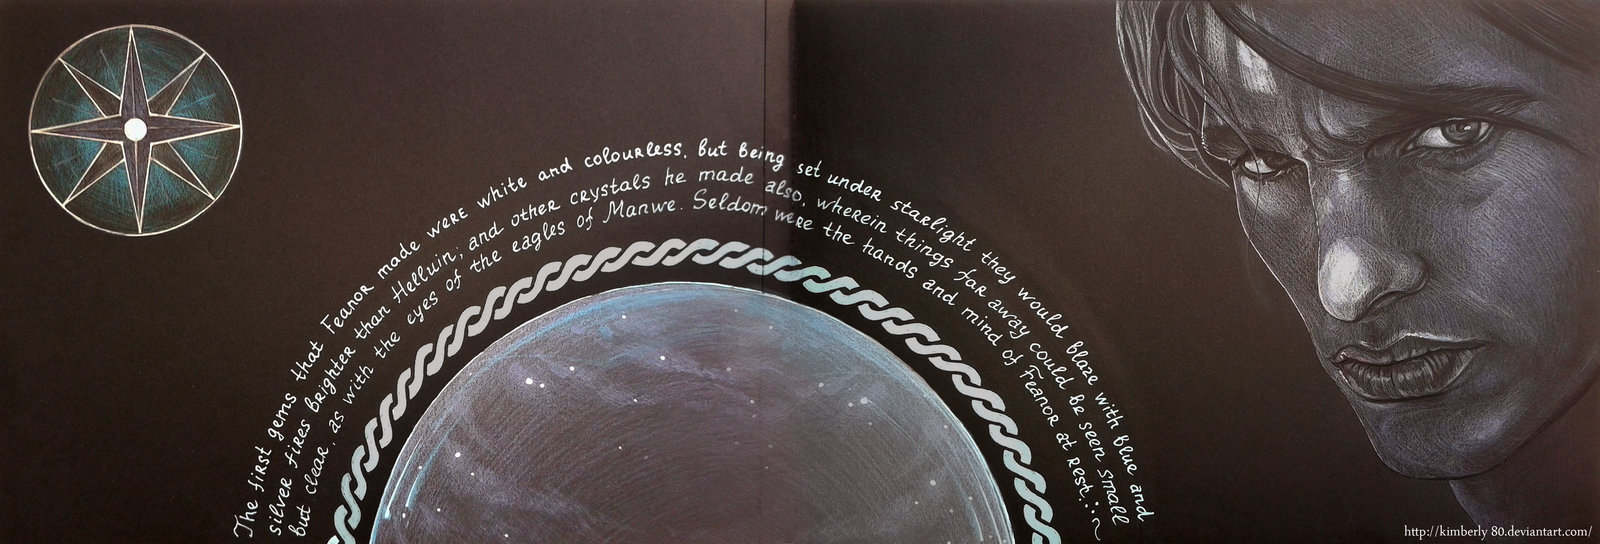 The first gems that Feanor made were white and colourless, but being set under starlight they would blaze with blue and
silver fires brighter than Helluin; and other crystals he made also, wherein things far away could be seen small
but clear, as with the eyes of the eagles of Manwe. Seldom were the hands and mind of Feanor at rest...~
http://kimberly80.deviantart.com/